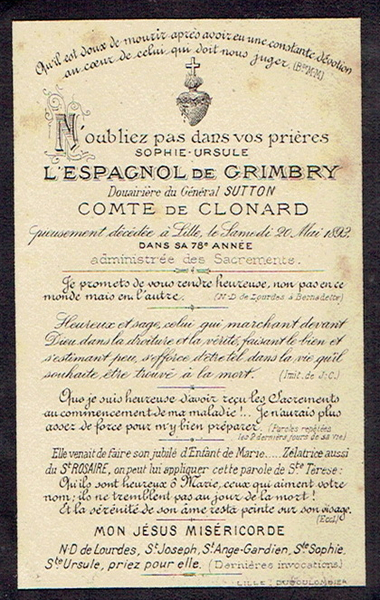 Qu'il est doux de mourir après avoir eu une constante dévotion
au cœur de celui qui doit nous juger. (Bse M-M)
N'oubliez pas dans vos prières
SOPHIE-URSULE
L'ESPAGNOL DE GRIMBRY
Douairière du Général SUTTON
COMTE DE CLONARD
pieusement décédée à Lille, le Samedi 20 Mai 1893
DANS SA 78e ANNÉE
administrée des Sacrements.
Je promets de vous rendre heureuse, non pas en ce
monde mais en l'autre. (N-D de Lourdes à Bernadette)
Heureux et sage, celui qui marchant devant
Dieu dans la droiture et la vérité, faisant le bien et
s'estimant peu, s'efforce d'être tel, dans la vie qu'il
souhaite être trouvé à la mort. (Imit. de J-C.)
Que je suis heureuse d'avoir reçu les Sacrements
au commencement de ma maladie!.. Je n'aurais plus
assez de force pour m'y bien préparer. (Paroles répétées
les 2 derniers jours de sa vie)
Elle venait de faire son jubilé d'Enfant de Marie.... Zélatrice aussi
du St ROSAIRE, on peut lui appliquer cette parole de Ste Térese:
Qu'ils sont heureux ô Marie, ceux qui aiment votre
nom; ils ne tremblent pas au jour de la mort!
Et la sérénité de son âme resta peinte sur son visage.
(Eccl.)
MON JÉSUS MISÉRICORDE
N-D de Lourdes, St Joseph, St Ange-Gardien, Ste Sophie,
Ste Ursule, priez pour elle. (Dernières invocations)
LILLE. DUBOULONBIER